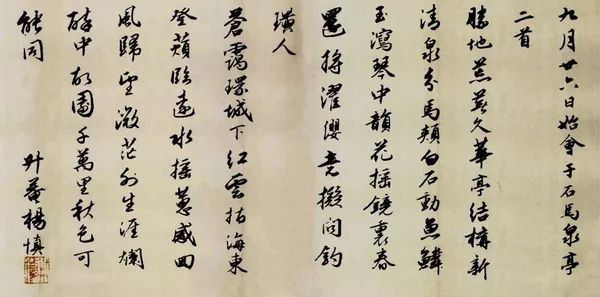 九月廿六日始會于石馬泉亭
二首
勝地荒蕪久華亭結構新
清泉分馬頰白石動魚鱗
玉瀉琴中韻花搖鏡裏春
還将濯纓意擬問釣
璜人
蒼靄環城下紅雲指海東
蘋臨遠水搖蕙感回
風歸望茫外生涯爛
醉中故園千萬里秋色可
能同
升菴楊慎